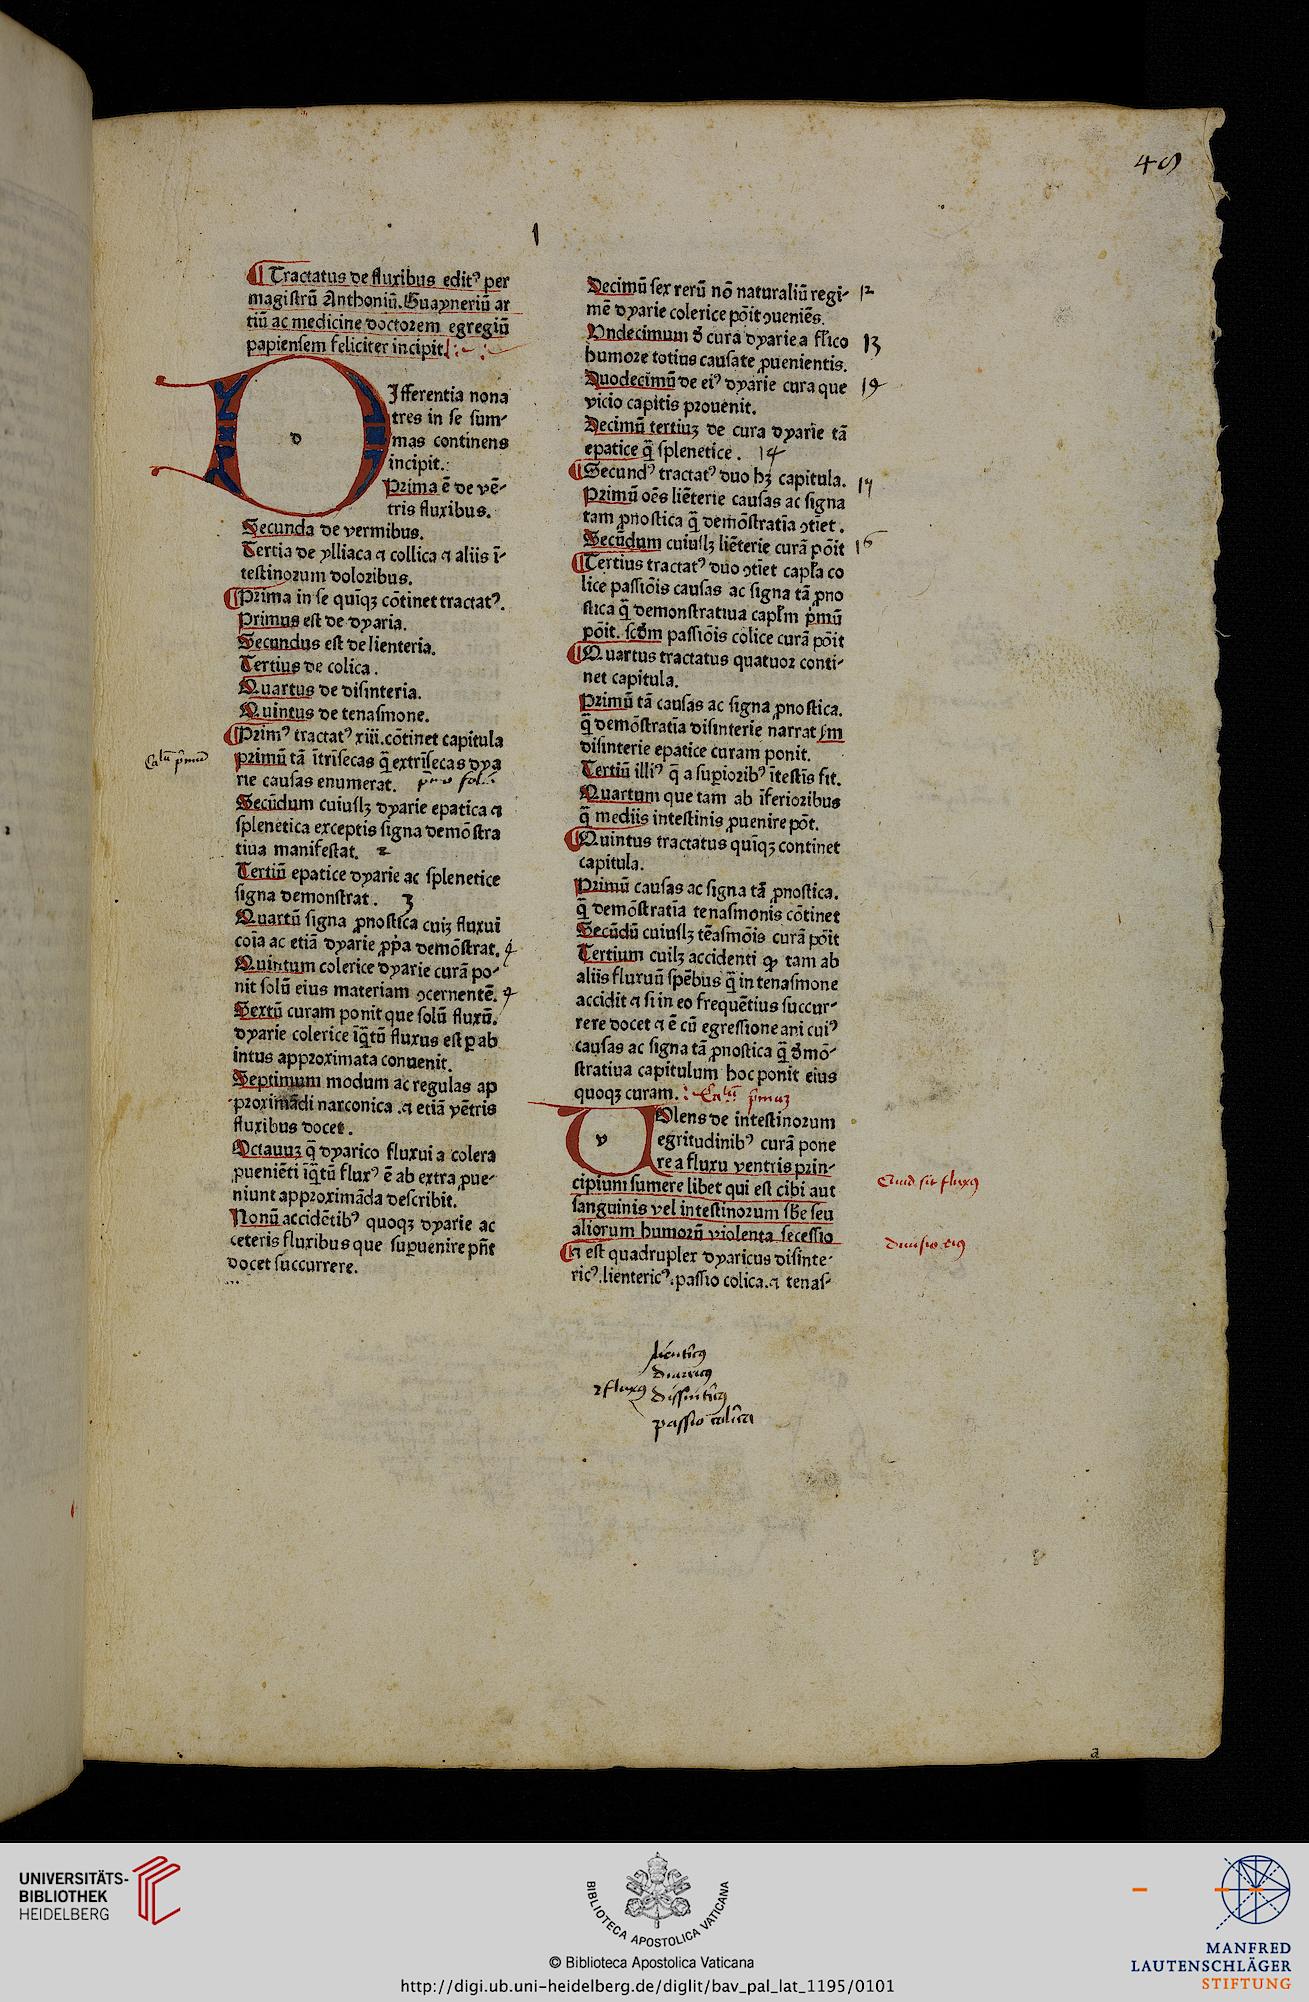 49
1
¶ Tractatus de fluxibus editꝰ per
magistrū Anthoniū. Guayneriū ar
tiū ac medicine doctorem egregiū
papiensem feliciter incipit.
d
Ifferentia nona
tres in se sum-
mas continens
incipit.
Prima ē de vē-
tris fluxibus.
Secunda de vermibus.
Tertia de ylliaca ⁊ collica ⁊ aliis ī-
testinorum doloribus.
¶ Prima in se quīqꝫ cōtinet tractatꝰ.
Primus est de dyaria.
Secundus est de lienteria.
Tertius de colica.
Quartus de disinteria.
Quintus de tenasmone.
¶ Primꝰ tractatꝰ xiii. cōtinet capitula
primū tā ītrīsecas q̄ extrīsecas dya
rie causas enumerat.
Secūdum cuiuslꝫ dyarie epatica ⁊
splenetica exceptis signa demōstra
tiua manifestat. 2
Tertiū epatice dyarie ac splenetice
signa demonstrat. 3
Quartū signa ꝓnostica cuiꝫ fluxui
coīa ac etiā dyarie ꝓp̄a demōstrat. 4
Quintum colerice dyarie curā po-
nit solū eius materiam ꝯcernentē.
Sextū curam ponit que solū fluxū.
dyarie colerice īq̄tū fluxus est ꝑ ab
intus approximata conuenit.
Septimum modum ac regulas ap
proximādi narconica .⁊ etiā vētris
fluxibus docet.
Octauuꝫ q̄ dyarico fluxui a colera
ꝓueniēti īq̄tū fluxꝰ ē ab extra ꝓue-
niunt approximāda describit.
Nonū accidētibꝰ quoqꝫ dyarie ac
ceteris fluxibus que suꝑuenire pn̄t
docet succurrere.
Decimū sex rerū nō naturaliū regi- 12
mē dyarie colerice pōit ꝯueniēs.
Vndecimum d̄ cura dyarie a fl'ico 13
humore totius causate ꝓuenientis.
Duodecimū de eiꝰ dyarie cura que 14
vicio capitis prouenit.
Decimū tertiuꝫ de cura dyarie tā
epatice q̄ splenetice. 14
¶ Secundꝰ tractatꝰ duo hꝫ capitula.
Primū oēs liēterie causas ac signa 15
tam ꝓnostica q̄ demōstratīa ꝯtīet.
Secūdum cuiuslꝫ liēterie curā pōit 16
¶ Tertius tractatꝰ duo ꝯtīet capl'a co
lice passiōis causas ac signa tā ꝓno
stica q̄ demonstratiua capl'm pͥmū
pōit. scd̄m passiōis colice curā pōit
¶ Quartus tractatus quatuor conti-
net capitula.
Primū tā causas ac signa ꝓnostica.
q̄ demōstratīa disinterie narrat
disinterie epatice curam ponit.
Tertiū illiꝰ q̄ a suꝑioribꝰ ītestīs fit.
Quartum que tam ab īferioribus
q̄ mediis intestinis ꝓuenire pōt.
¶ Quintus tractatus quīqꝫ continet
capitula.
Primū causas ac signa tā ꝓnostica.
q̄ demōstratīa tenasmonis cōtinet
Secūdū cuiuslꝫ tēasmōis curā pōit
Tertium cuilꝫ accidenti ꝙ tam ab
aliis fluxuū spēbus q̄ in tenasmone
accidit ⁊ si in eo frequētius succur-
rere docet ⁊ ē cū egressione ani cuiꝰ
causas ac signa tā ꝓnostica q̄ d̄mō-
stratiua capitulum hoc ponit eius
quoqꝫ curam.
v
Olens de intestinorum
egritudinibꝰ curā pone
re a fluxu ventris prin-
cipium sumere libet qui est cibi aut
sanguinis vel intestinorum sb̄e seu
aliorum humorū violenta secessio
¶ Et est quadruplex dyaricus disinte-
ricꝰ. lientericꝰ. passio colica. ⁊ tenas-
Quid sit fluxus
diuisio eius
fluxus
lientericus
diarricus
dissintericus
passio colica
a
UNIVERSITÄTS-
BIBLIOTHEK
HEIDELBERG
BIBLIOTECA APOSTOLICA VATICANA
© Biblioteca Apostolica Vaticana
http://digi.ub.uni-heidelberg.de/diglit/bav_pal_lat_1195/0101
MANFRED
LAUTENSCHLÄGER
STIFTUNG